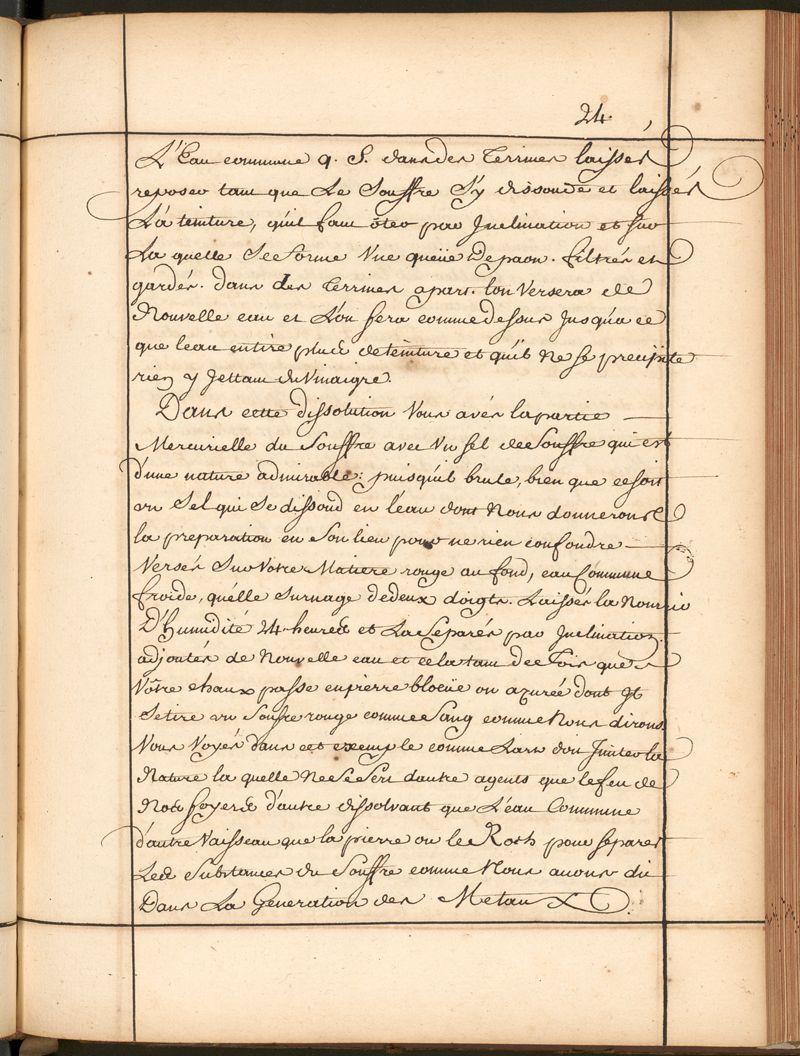 24.
L'Eau commune q. S. dans des Terrines laissés
reposer tant que Le Souffre s'y dissoude et laissés
La teinture, quil faut ôter par Inclination et sur
La quelle Se forme Vne queüe de paon. filtrés et
gardés. dans des Terrines apart. lon Versera de
Nouvelle eau et L'on fera comme dessus Jusqua ce
que leau entire plus de teinture et quil Ne se precipite
rien y Jettant du Vinaigre.
Dans cette dissolution Vous avés la partie
Mercurielle du Souffre avec Vn sel de Souffre qui est
d'une nature admirable: puisquil brule, bien que ce soit
vn Sel qui Se dissoud en l'eau dont Nous donnerons
la preparation en Son lieu pour ne rien confondre
Versés Sur Votre Matiere rouge au fond, eau Commune
froide, qu'elle Surnage de deux doigts. Laissés la Nourrir
D'humidité 24 heures et La Separés par Inclination.
adjoutés de Nouvelle eau et cela tant de Fois que
Vôtre chaux passe en pierre bloeüe ou azurée dont Jl
Se tire vn Soufre rouge comme Sang comme Nous dirons.
Vous Voyés dans cet exemple comme Lart doit Jmiter la
Nature la quelle Ne se Sert dautre agents que le feu de
Nos foyers d'autre dissolvant que L'eau Commune
d'autre Vaisseau que la pierre ou le Roch pour separer
Les Substances du Souffre comme Nous avons dit
Dans La Generation des Metaux